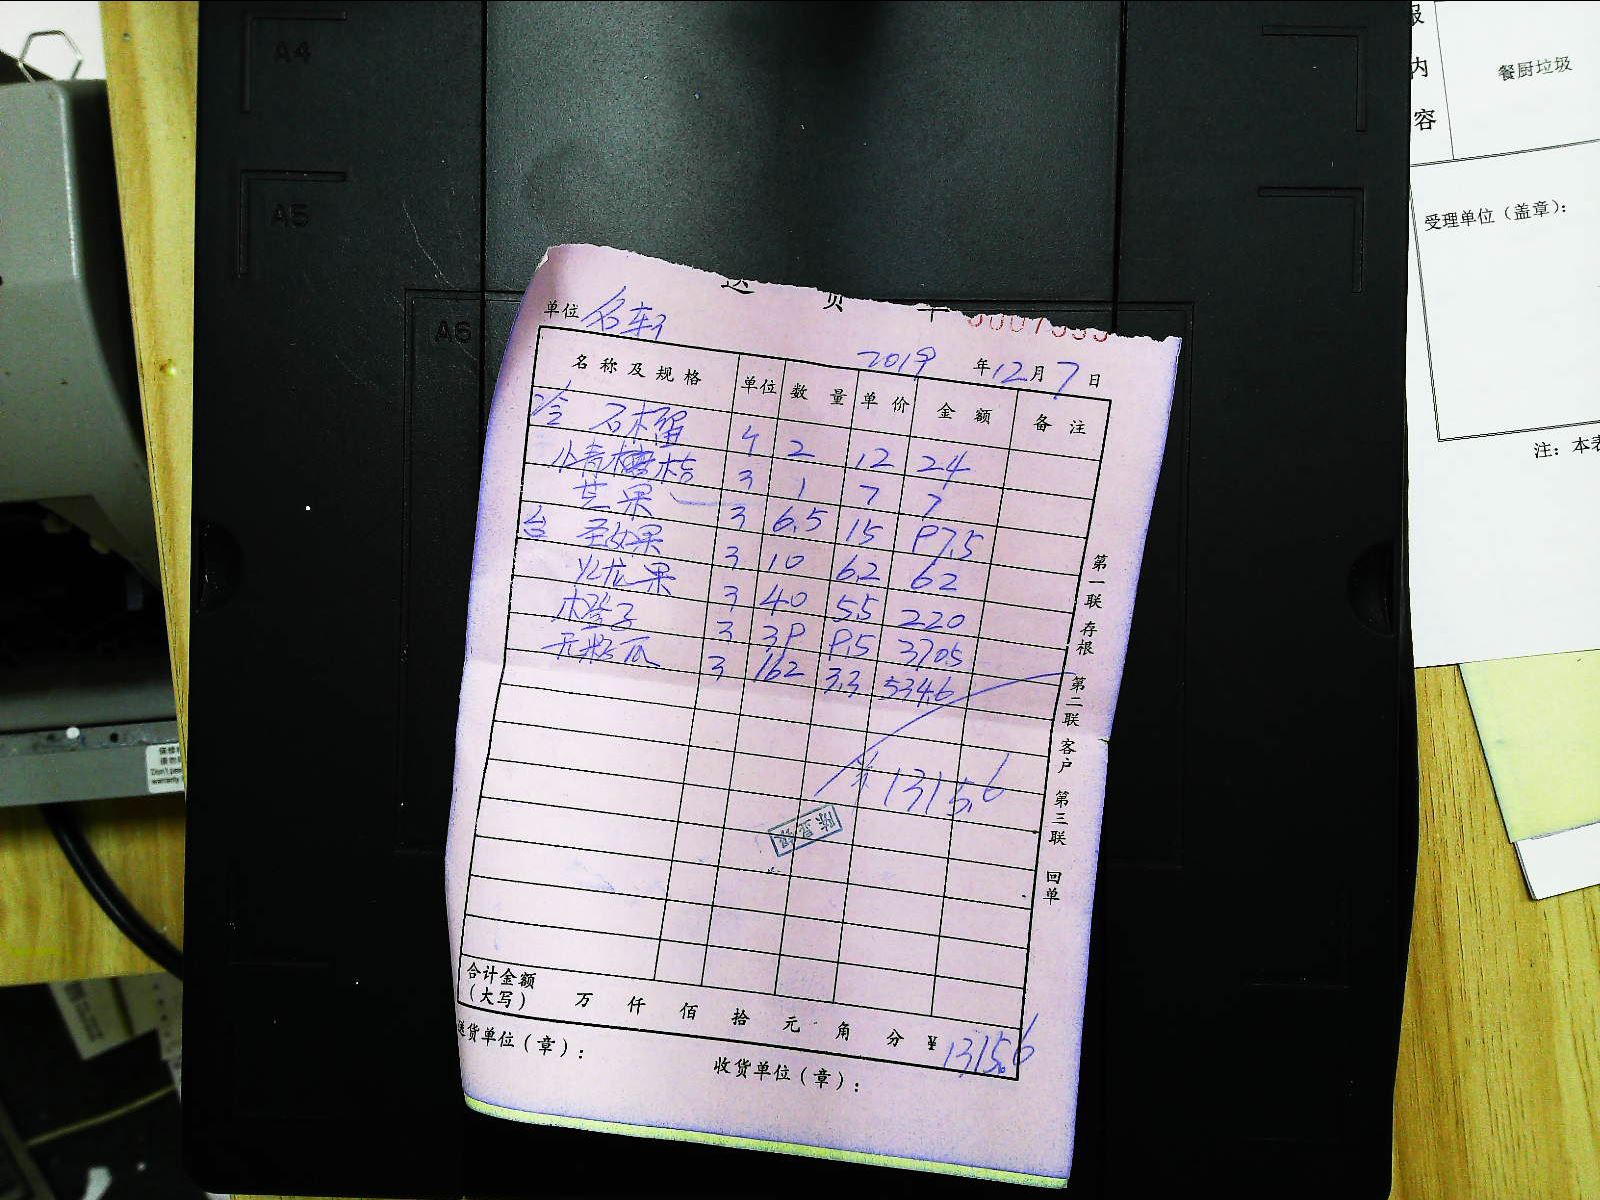 A4
A5
A6
服
内
容
餐厨垃圾
受理单位（盖章）：
注：本表
Don't pee
warranty
送 货 单
单位 名轩
2019 年 12 月 7 日
名称及规格 单位 数量 单价 金额 备注
冷 石榴 4 2 12 24
小青桔 3 1 7 7
芒果 3 6.5 15 97.5
台 圣女果 3 10 6.2 62
火龙果 3 40 5.5 220
橙子 3 39 9.5 370.5
无籽瓜 3 162 3.3 534.6
1315.6
第一联 存根 第二联 客户 第三联 回单
合计金额
（大写） 万 仟 佰 拾 元 角 分 ¥ 1315.6
送货单位（章）：
收货单位（章）：